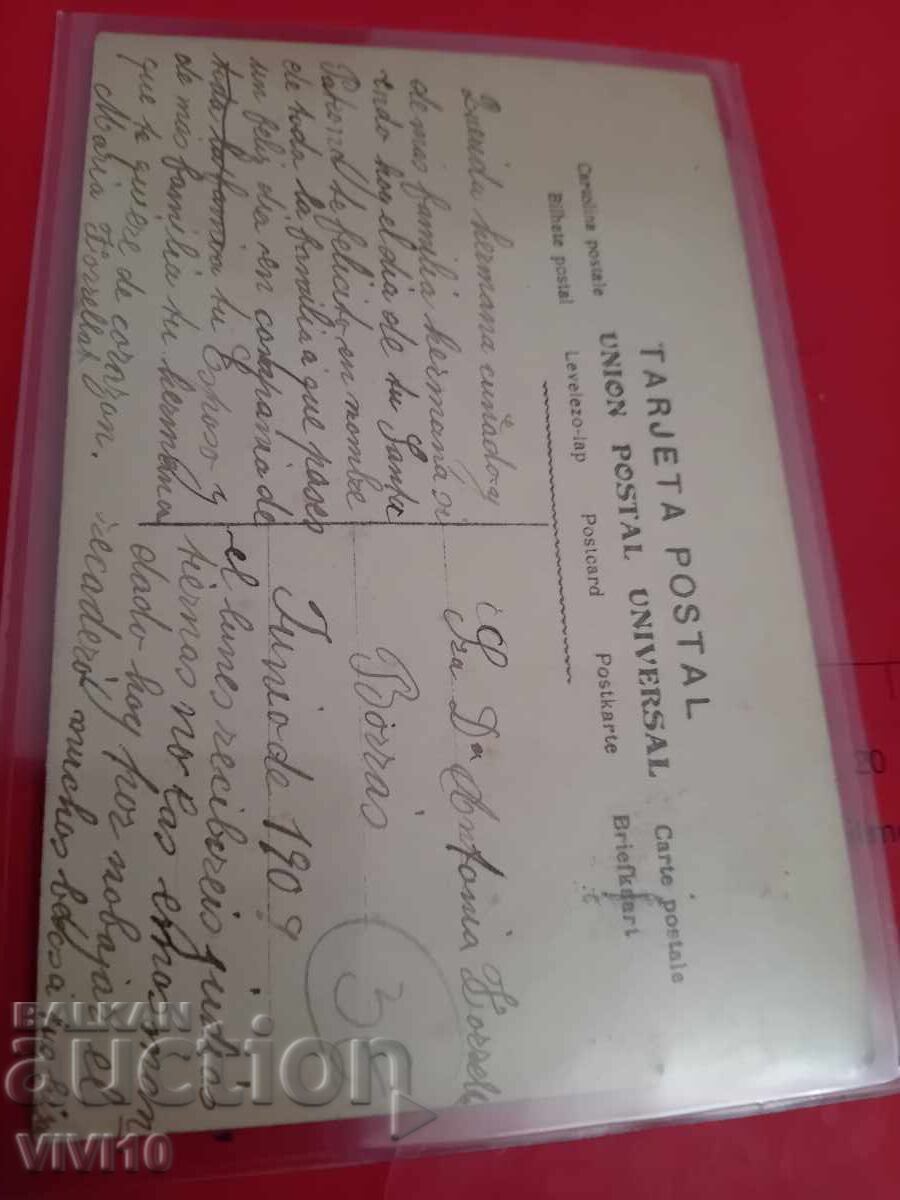 TARJETA POSTAL
UNION POSTAL UNIVERSAL
Carte postale
Cartolina postale
Bilhete postal
Levelezo-lap
Postcard
Postkarte
Briefkaart
Querida hermana cuñada y
de mas familia hermana si
endo hoy el dia de tu Santo
Patrono te felicito en nombre
de toda la familia que pases
un feliz dia en compañia de
tu Esposo y
de mas familia tu hermana
que te quiere de corazon.
Maria Torrellas
Sra Dª Antonia
Borras
Junio de 1909
el lunes recibereis judias
tiernas no las emos man
dado hoy por no bajar el
recadero muchos besos
3
BALKAN
auction
VIVI10